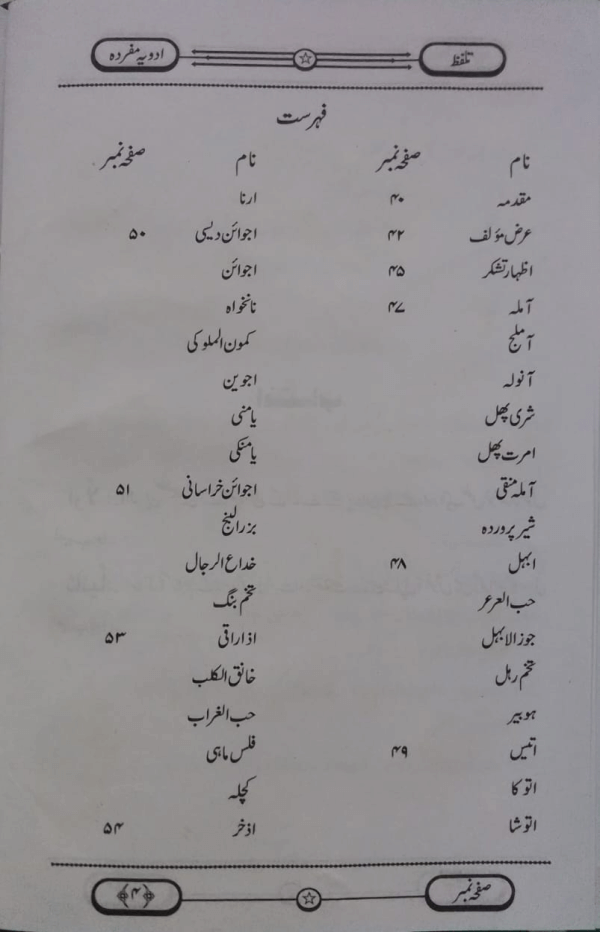 تلفظ ادویہ مفردہ
فہرست
نام صفحہ نمبر نام صفحہ نمبر
مقدمہ ۴۰ ارنا
عرض مؤلف ۴۲ اجوائن دیسی ۵۰
اظہار تشکر ۴۵ اجوائن
آملہ ۴۷ نانخواہ
آملج کمون الملوکی
آنولہ اجوین
شری پھل یامنی
امرت پھل یامنکی
آملہ منقی اجوائن خراسانی ۵۱
شیر پروردہ بزرالبنج
ابہل ۴۸ خداع الرجال
حب العرعر تخم بنگ
جوزالابہل اذاراقی ۵۳
تخم رہل خانق الکلب
ہوبیر حب الغراب
اتیس ۴۹ فلس ماہی
اتوکا کچلہ
اتوشا اذخر ۵۴
صفحہ نمبر ﴿۴﴾